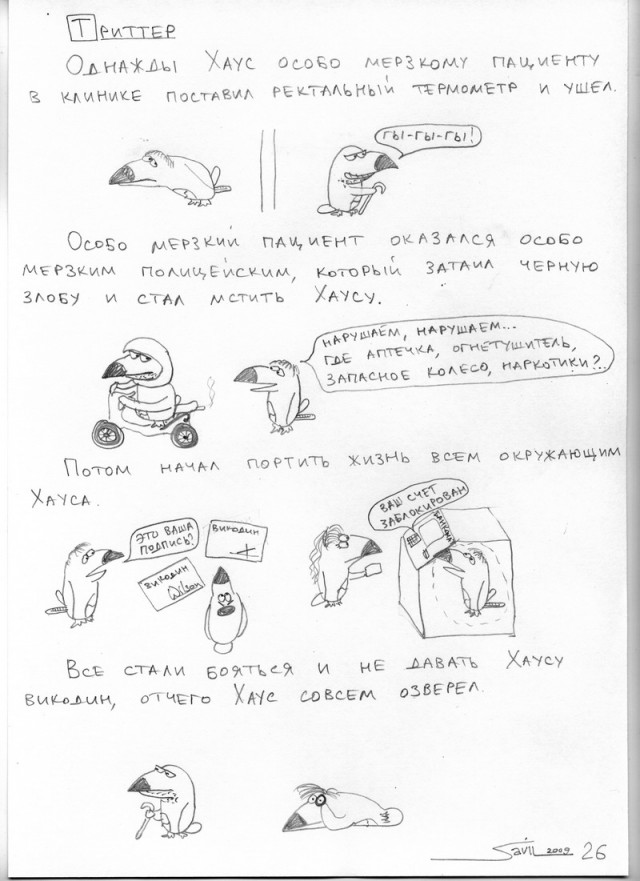 Триттер
Однажды Хаус особо мерзкому пациенту
в клинике поставил ректальный термометр и ушел.
Гы-гы-гы!
Особо мерзкий пациент оказался особо
мерзким полицейским, который затаил черную
злобу и стал мстить Хаусу.
Нарушаем, нарушаем...
Где аптечка, огнетушитель,
запасное колесо, наркотики?..
Потом начал портить жизнь всем окружающим
Хауса.
Это ваша
подпись?
Викодин
Викодин
Wilson
Ваш счет
заблокирован
Все стали бояться и не давать Хаусу
викодин, отчего Хаус совсем озверел.
Savil 2009 26